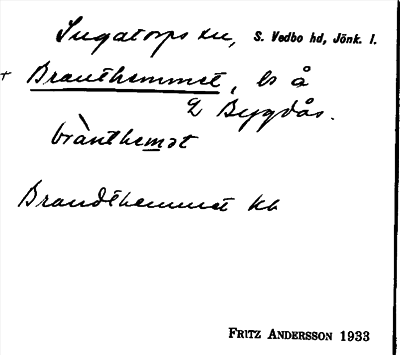 Ingatorps sn, S. Vedbo hd, Jönk. l.
+ Branthemmet, ls å
Bygdås.
brànthemət
Brandthemmet kb
FRITZ ANDERSSON 1933